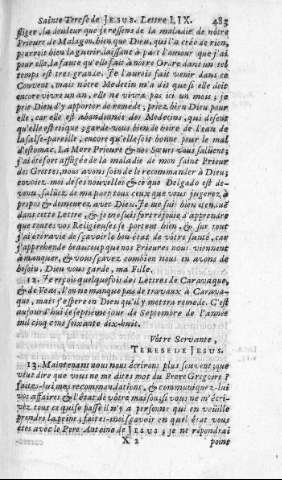 Sainte Terese de JESUS. Lettre LIX. 483
fliger, la douleur que je ressens de la maladie de nôtre
Prieure de Malagon, bien que Dieu, qui l'a créée de rien,
pourroit bien la guerir, laissant à part l'amour que j'ai
pour elle, la faute qu'elle fait à nôtre Ordre dans un tel
temps est tres grande. Je l'aurois fait venir dans ce
Convent, mais nôtre Medecin m'a dit que si elle doit
encore vivre un an, elle ne vivra pas ici un mois; je
prie Dieu d'y apporter du remede; priez bien Dieu pour
elle, car elle est abandonnée des Medecins, qui disent
qu'elle est etique; gardez-vous bien de boire de l'eau de
la salse-pareille, encore qu'elle soit bonne pour le mal
d'estomac. La Mere Prieure & nos Sœurs vous saluent;
j'ai été fort affligée de la maladie de mon saint Prieur
des Grottes, nous avons soin de le recommander à Dieu;
envoiez moi de ses nouvelles & ce que Delgado est de-
venu, saluez de ma part tous ceux que vous jugerez, à
propos & demeurez avec Dieu. Je me suis bien étenduë
dans cette Lettre, & je me suis fort réjouie d'apprendre
que toutes vos Religieuses se portent bien, & sur tout
j'ai été ravie de sçavoir le bon état de vôtre santé, car
j'apprehende beaucoup que nos Prieures nous viennent
à manquer, & vous sçavez combien nous en avons de
besoin. Dieu vous garde, ma Fille.
12. Je reçois quelquefois des Lettres de Caravaque,
& de Veas, l'on ne manque pas de travaux à Carava-
que, mais j'espere en Dieu qu'il y mettra remede. C'est
aujourd'hui le septiéme jour de Septembre de l'année
mil cinq cens soixante dix-huit.
Vôtre Servante,
TERESE DE JESUS.
13. Maintenant nous nous écrirons plus souvent; que
veut dire que vous ne me dites mot du Frere Gregoire?
faites-lui mes recommandations, & communiquez-lui
vos affaires & l'état de vôtre maison; si vous ne m'écri-
vez tout ce qui se passe il n'y a personne qui en veüille
prendre la peine; faites-moi sçavoir en quel état vous
êtes avec le Pere Antoine de JESUS; je ne répondrai
X 2 point